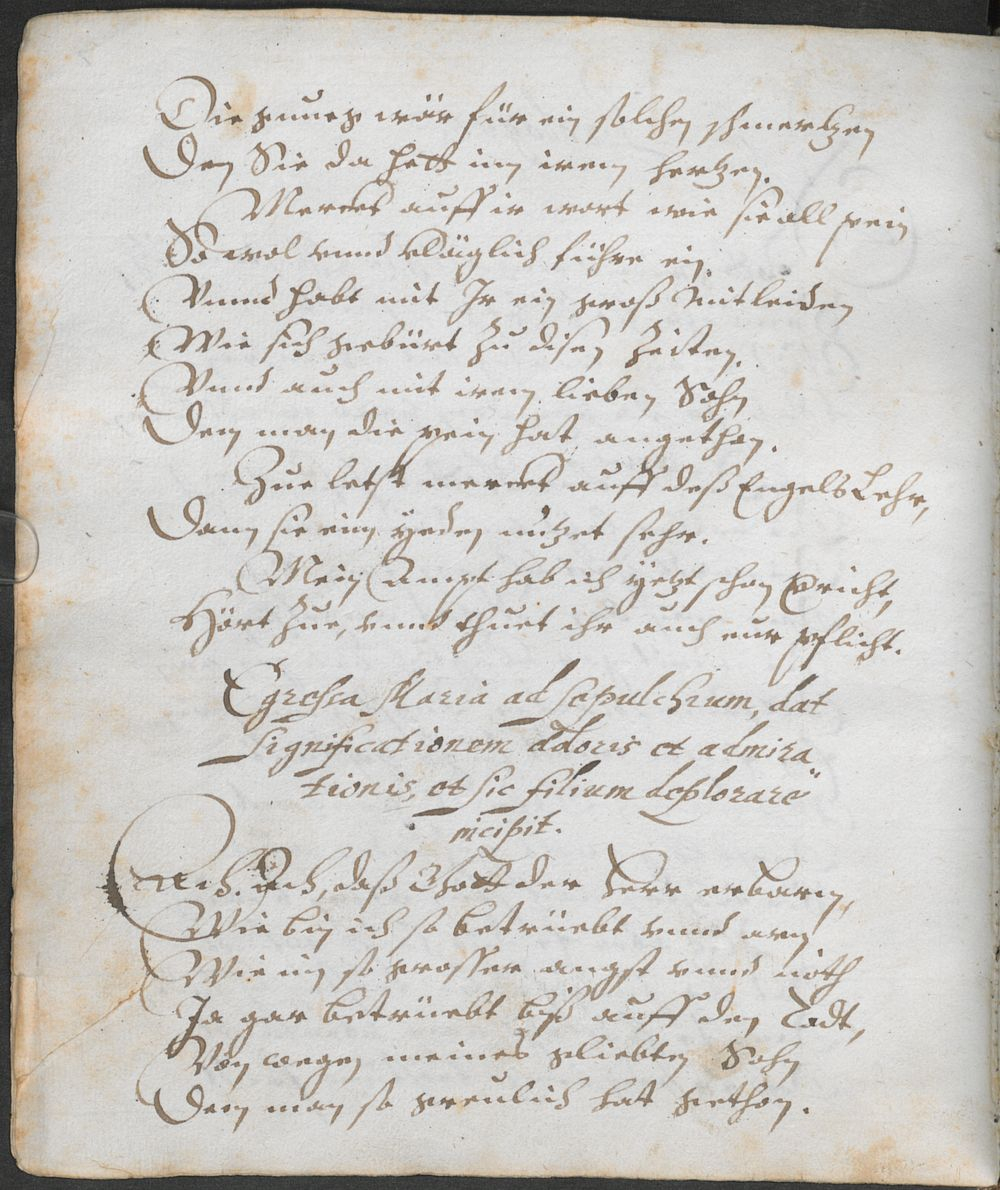 Die gnueg wär für ein solchen schmertzen
Den Sie da hett inn irem hertzen.
Merckt auff ir wort wie sie all pein
So wol vnnd kläglich führe ein,
Vnnd habt mit Ir ein groß Mitleiden
Wie sich gebürt zu disen Zeiten,
Vnnd auch mit irem lieben Sohn
Dem man die pein hat angethon.
Zue letst merckt auff deß Engels Lehr,
Dann sie eim yeden nutzet sehr.
Mein Ampt hab ich yetzt schon verricht,
Hört zue, vnnd thuet ihr auch eur pflicht.
Egressa Maria ad sepulchrum, dat
significationem doloris et admira
tionis, et sic filium deplorare
incipit.
Ach. Ach, daß Gott der Herr erbarm,
Wie bin ich so betrüebt vnnd arm
Wie inn so grosser angst vnnd noth
Ja gar betrüebt biß auff den Todt,
Von wegen meines gliebten Sohn
Dem man so greulich hat gethon.